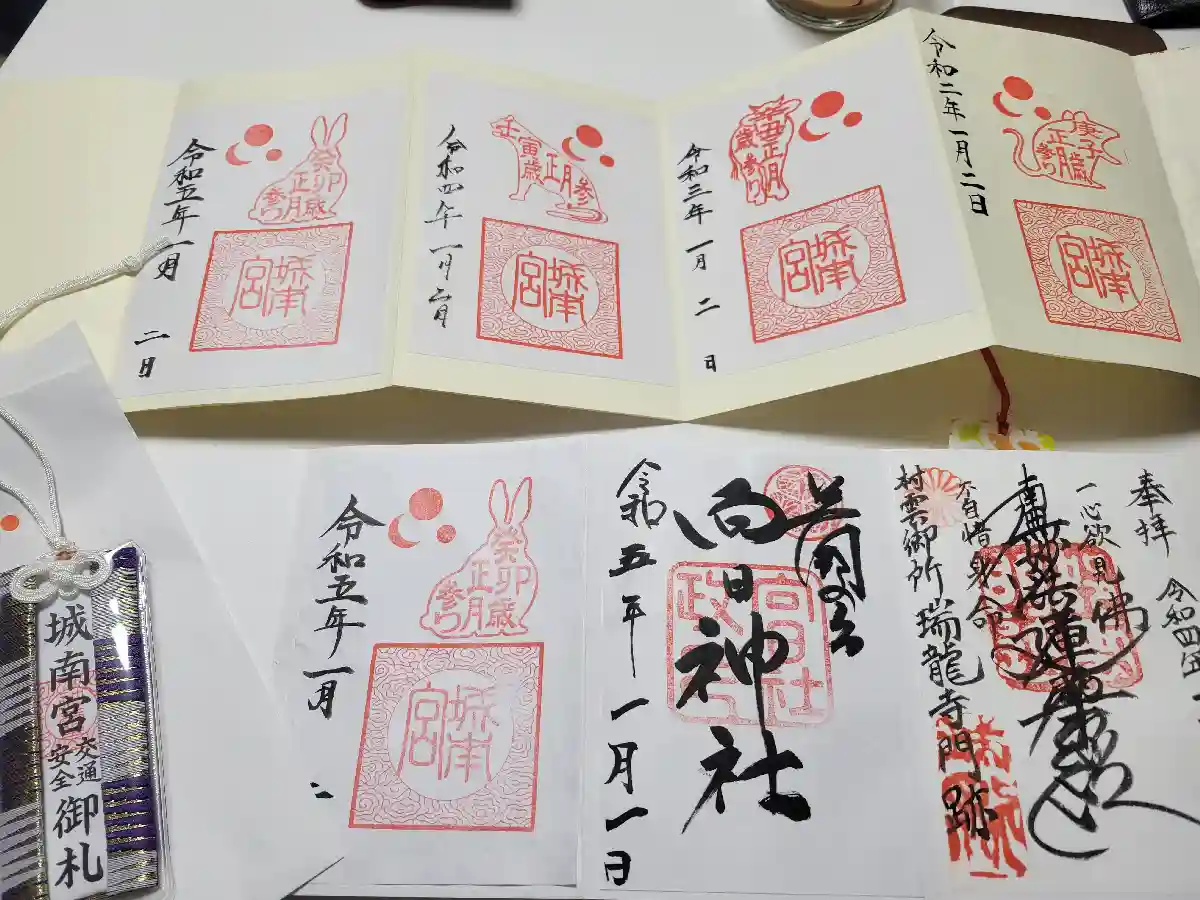 令和二年一月二日
庚子歳
正月
参り
城南宮
令和三年一月二日
辛丑
正月
参
歳
城南宮
令和四年一月二日
壬寅歳
正月
参り
城南宮
令和五年一月二日
癸卯歳
正月
参り
城南宮
奉拝
一心欲見佛
南無妙法蓮華経
不自惜身命
村雲御所 瑞龍寺門跡
向日神社
令和五年一月一日
令和五年一月二
癸卯歳
正月
参り
城南宮
城南宮
交通
安全
御札